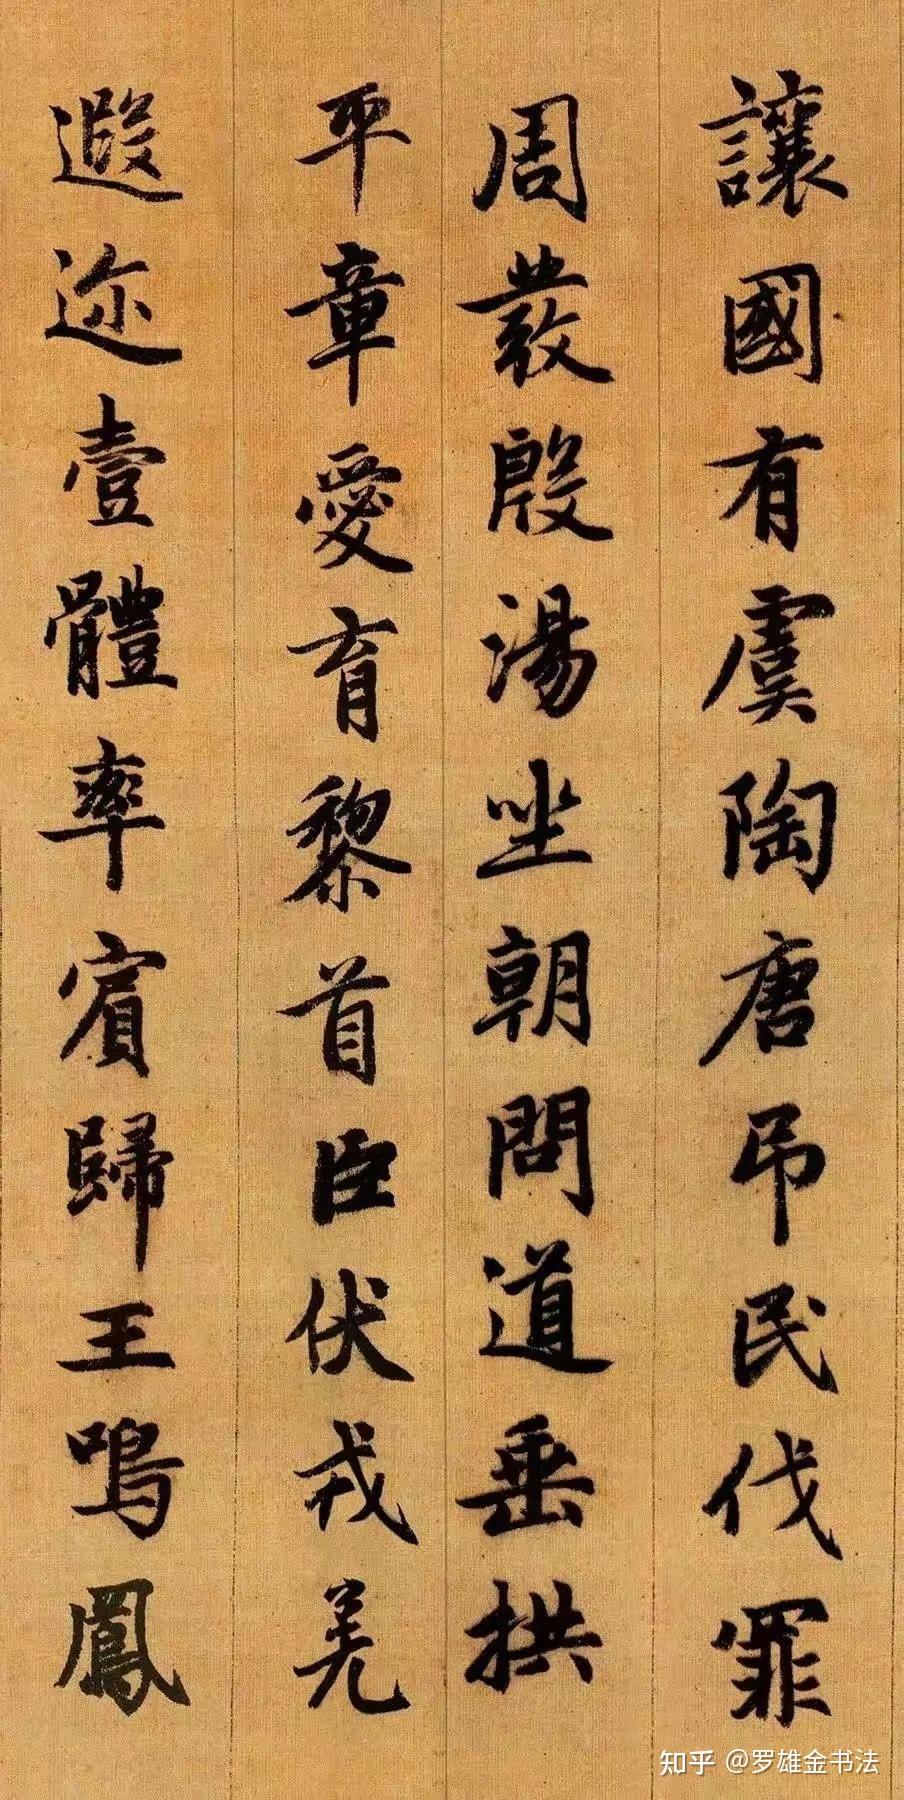 讓國有虞陶唐弔民伐罪
周發殷湯坐朝問道垂拱
平章愛育黎首臣伏戎羌
遐迩壹體率賓歸王鳴鳳
知乎 @罗雄金书法